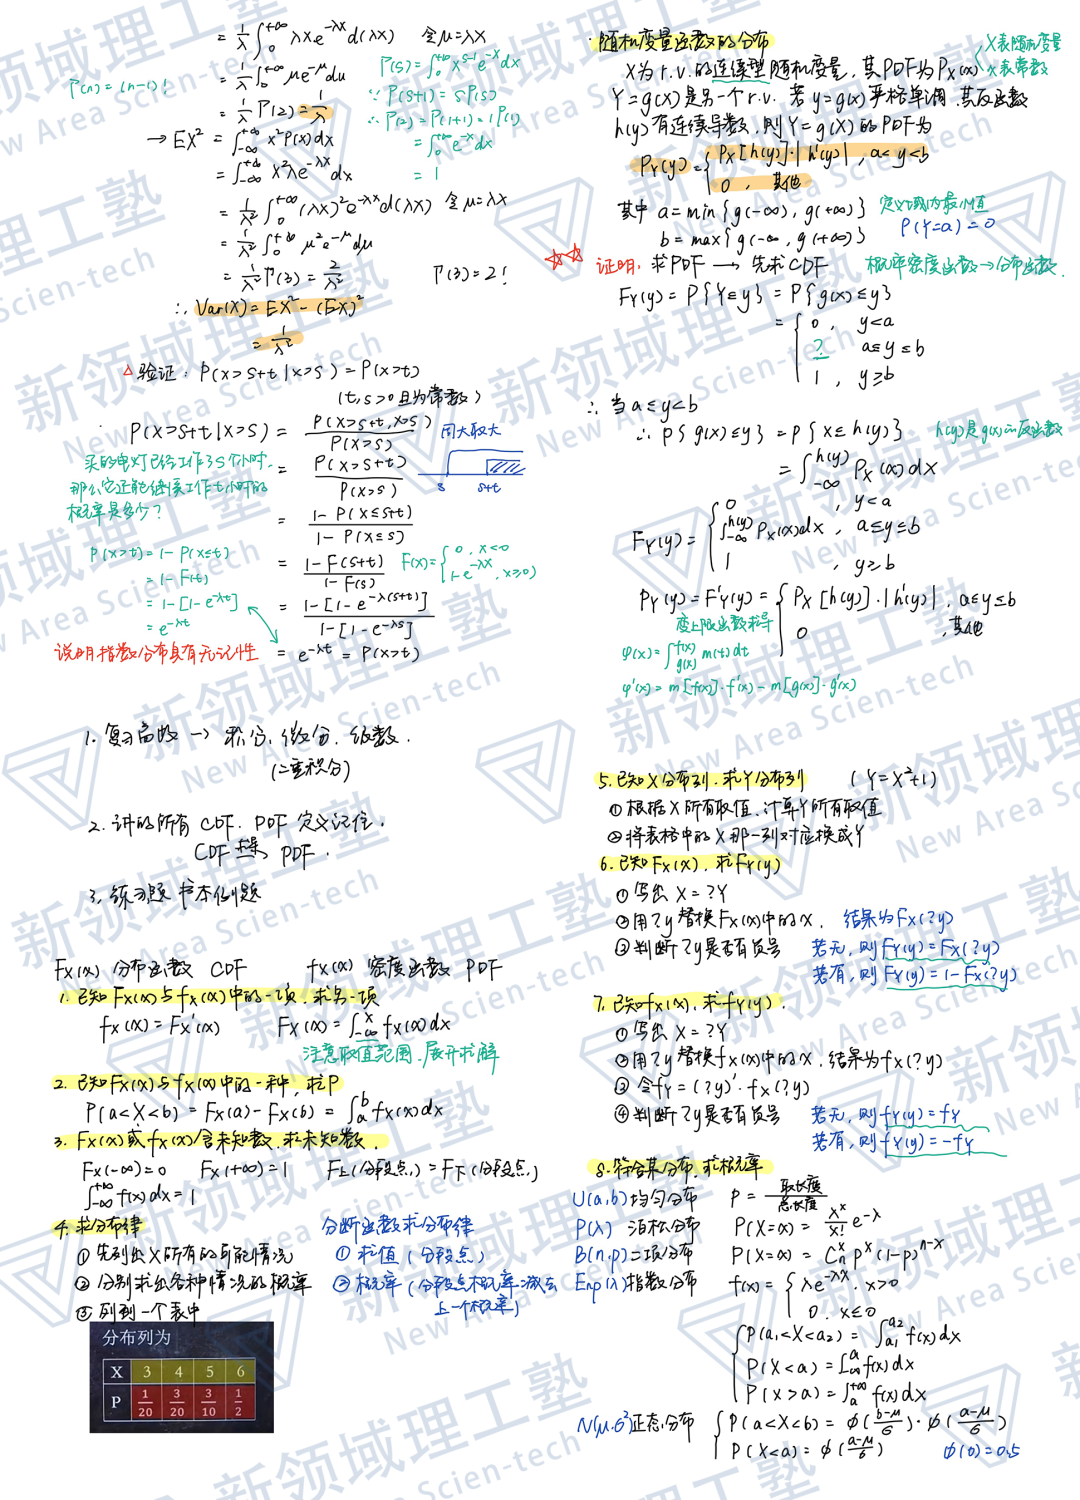 = 1/λ ∫₀^{+∞} λx e^{-λx} d(λx) 令 μ=λx
Γ(n) = (n-1)!
= 1/λ ∫₀^{+∞} μe^{-μ} du
= 1/λ Γ(2) = 1/λ
Γ(s) = ∫₀^{+∞} x^{s-1} e^{-x} dx
∵ Γ(s+1) = sΓ(s)
∴ Γ(2) = Γ(1+1) = 1Γ(1)
= ∫₀^{+∞} e^{-x} dx
= 1
→ EX² = ∫_{-∞}^{+∞} x²P(x)dx
= ∫_{-∞}^{+∞} x²λe^{-λx} dx
= 1/λ² ∫₀^{+∞} (λx)² e^{-λx} d(λx) 令 μ=λx
= 1/λ² ∫₀^{+∞} μ²e^{-μ} du
= 1/λ² Γ(3) = 2/λ² Γ(3)=2!
∴ Var(X) = EX² - (EX)²
= 1/λ²
△ 验证: P(X>s+t|X>s) = P(X>t)
(t,s>0 且为常数)
P(X>s+t|X>s) = P(X>s+t, X>s) / P(X>s) 同大取大
= P(X>s+t) / P(X>s)
s s+t
买的电灯已经工作了s个小时,
那么它还能继续工作t小时的
概率是多少?
= 1-P(X≤s+t) / 1-P(X≤s)
= 1-F(s+t) / 1-F(s)
F(x) = { 0, x<0
1-e^{-λx}, x≥0
= 1-[1-e^{-λ(s+t)}] / 1-[1-e^{-λs}]
= e^{-λt} = P(X>t)
P(X>t) = 1-P(X≤t)
= 1-F(t)
= 1-[1-e^{-λt}]
= e^{-λt}
说明指数分布具有无记忆性
1. 复习高数 → 积分, 微分, 级数.
(二重积分)
2. 讲的所有 CDF, PDF 定义记住.
CDF PDF.
3. 练习题 书本例题
Fx(x) 分布函数 CDF fx(x) 密度函数 PDF
1. 已知 Fx(x)与fx(x)中的一项, 求另一项
fx(x) = Fx'(x) Fx(x) = ∫_{-∞}^{x} fx(x)dx
注意取值范围, 展开求解
2. 已知 Fx(x)与fx(x)中的一种, 求P
P(a<X<b) = Fx(a)-Fx(b) = ∫_a^b fx(x)dx
3. Fx(x)或fx(x)含未知数, 求未知数.
Fx(-∞)=0 Fx(+∞)=1 F上(分段点) = F下(分段点)
∫_{-∞}^{+∞} f(x)dx=1
4. 求分布律
① 先列出X所有的可能情况
② 分别求出各种情况的概率
③ 列到一个表中
分断函数求分布律
① 求值 (分段点)
② 概率 (分段点概率减去
上一个概率)
分布列为
X 3 4 5 6
P 1/20 3/20 3/10 1/2
· 随机变量函数的分布
X为 r.v. 的连续型随机变量, 其PDF为Px(x) { X表随机变量
x表常数
Y=g(x)是另一个r.v. 若y=g(x)严格单调, 其反函数
h(y)有连续导数, 则Y=g(X)的PDF为
PY(y) = { Px[h(y)]·|h'(y)|, a<y<b
0, 其他
其中 a=min{g(-∞), g(+∞)} 定义域内最小值
b=max{g(-∞, g(+∞)} P(Y=a)=0
☆☆ 证明: 求PDF → 先求CDF 概率密度函数→分布函数
FY(y) = P{Y≤y} = P{g(x)≤y}
= { 0, y<a
?, a≤y≤b
1, y≥b
∴ 当 a≤y<b
∴ P{g(x)≤y} = P{X≤h(y)} h(y)是g(x)的反函数
= ∫_{-∞}^{h(y)} Px(x)dx
FY(y) = { 0, y<a
∫_{-∞}^{h(y)} Px(x)dx, a≤y≤b
1, y≥b
PY(y) = F'Y(y) = { Px[h(y)]·|h'(y)|, a≤y≤b
0, 其他
变上限函数求导
φ(x) = ∫_{g(x)}^{f(x)} m(t)dt
φ'(x) = m[f(x)]·f'(x) - m[g(x)]·g'(x)
5. 已知X分布列, 求Y分布列 (Y=X²+1)
① 根据X所有取值, 计算Y所有取值
② 将表格中的X那一列对应换成Y
6. 已知Fx(x), 求FY(y)
① 写出 X=?Y
② 用?y替换Fx(x)中的x, 结果为Fx(?y)
③ 判断?y是否有负号 若无, 则FY(y)=Fx(?y)
若有, 则FY(y)=1-Fx(?y)
7. 已知fx(x), 求fY(y).
① 写出 X=?Y
② 用?y替换fx(x)中的x, 结果为fx(?y)
③ 令fY=(?y)'·fx(?y)
④ 判断?y是否有负号 若无, 则fY(y)=fY
若有, 则fY(y)=-fY
8. 符合某分布, 求概率
U(a,b) 均匀分布 P = 取长度/总长度
P(λ) 泊松分布 P(X=x) = λ^x/x! e^{-λ}
B(n,p) 二项分布 P(X=x) = C_n^x p^x (1-p)^{n-x}
Exp(λ) 指数分布 f(x) = { λe^{-λx}, x>0
0, x≤0
{ P(a₁<X<a₂) = ∫_{a₁}^{a₂} f(x)dx
P(X<a) = ∫_{-∞}^{a} f(x)dx
P(X>a) = ∫_a^{+∞} f(x)dx
N(μ,σ²) 正态分布 { P(a<X<b) = φ(b-μ/σ)·φ(a-μ/σ)
P(X<a) = φ(a-μ/σ) φ(0)=0.5
新领域理工塾
New Area Scien-tech